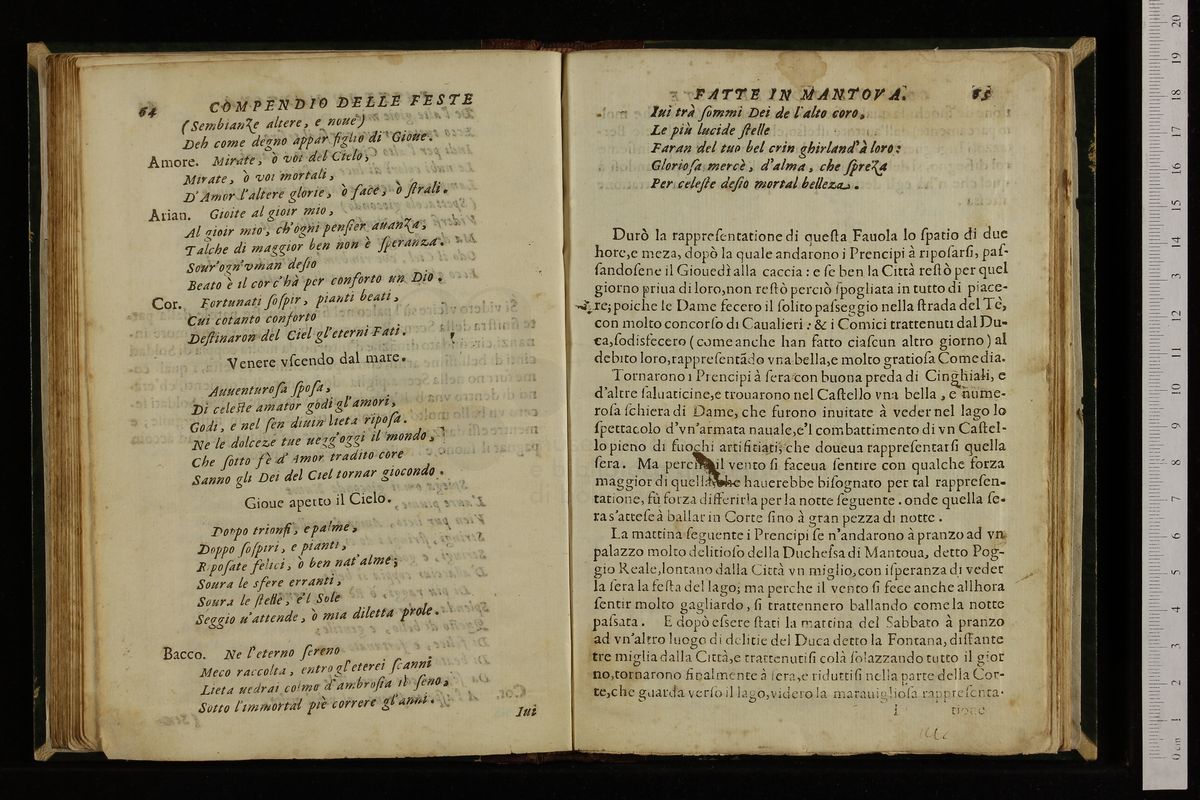 64 COMPENDIO DELLE FESTE
(Sembianze altere, e noue)
Deh come degno appar figlio di Gioue.
Amore. Mirate, ò voi del Cielo,
Mirate, ò voi mortali,
D'Amor l'altere glorie, ò face, ò ſtrali.
Arian. Gioite al gioir mio,
Al gioir mio, ch'ogni penſier auanza,
Talche di maggior ben non è ſperanza.
Sour'ogn'vman deſio
Beato è il cor c'hà per conforto un Dio.
Cor. Fortunati ſoſpir, pianti beati,
Cui cotanto conforto
Deſtinaron del Ciel gl'eterni Fati.
Venere vſcendo dal mare.
Auuenturoſa ſpoſa,
Di celeſte amator godi gl'amori,
Godi, e nel ſen diuin lieta ripoſa.
Ne le dolceze tue uegg'oggi il mondo,
Che ſotto fè d'Amor tradito core
Sanno gli Dei del Ciel tornar giocondo.
Gioue aperto il Cielo.
Doppo trionfi, e palme,
Doppo ſoſpiri, e pianti,
Ripoſate felici, ò ben nat'alme;
Soura le sfere erranti,
Soura le ſtelle, e'l Sole
Seggio u'attende, ò mia diletta prole.
Bacco. Ne l'eterno ſereno
Meco raccolta, entro gl'eterei ſcanni
Lieta uedrai colmo d'ambroſia il ſeno,
Sotto l'immortal piè correre gl'anni.
Iui
FATTE IN MANTOVA. 65
Iui trà ſommi Dei de l'alto coro,
Le più lucide ſtelle
Faran del tuo bel crin ghirland'à loro:
Glorioſa mercè, d'alma, che ſpreza
Per celeſte deſio mortal belleza.
Durò la rappreſentatione di queſta Fauola lo ſpatio di due
hore,e meza, dopò la quale andarono i Prencipi à ripoſarſi, paſ-
ſandoſene il Giouedì alla caccia: e ſe ben la Città reſtò per quel
giorno priua di loro,non reſtò perciò ſpogliata in tutto di piace-
re; poiche le Dame fecero il ſolito paſseggio nella ſtrada del Tè,
con molto concorſo di Caualieri: & i Comici trattenuti dal Du-
ca,ſodisfecero (come anche han fatto ciaſcun altro giorno) al
debito loro,rappreſentãdo vna bella,e molto gratioſa Comedia.
Tornarono i Prencipi à ſera con buona preda di Cinghiali, e
d'altre ſaluaticine,e trouarono nel Caſtello vna bella, e nume-
roſa ſchiera di Dame, che furono inuitate à veder nel lago lo
ſpettacolo d'vn'armata nauale,e'l combattimento di vn Caſtel-
lo pieno di fuochi artifitiati, che doueua rappreſentarſi quella
ſera. Ma perche il vento ſi faceua ſentire con qualche forza
maggior di quella che hauerebbe biſognato per tal rappreſen-
tatione, fù forza differirla per la notte ſeguente. onde quella ſe-
ra s'atteſe à ballar in Corte ſino à gran pezza di notte.
La mattina ſeguente i Prencipi ſe n'andarono à pranzo ad vn
palazzo molto delitioſo della Ducheſsa di Mantoua, detto Pog-
gio Reale,lontano dalla Città vn miglio,con iſperanza di veder
la ſera la feſta del lago; ma perche il vento ſi fece anche allhora
ſentir molto gagliardo, ſi trattennero ballando come la notte
paſsata. E dopò eſsere ſtati la mattina del Sabbato à pranzo
ad vn'altro luogo di delitie del Duca detto la Fontana, diſtante
tre miglia dalla Città,e trattenutiſi colà ſolazzando tutto il gior
no,tornarono finalmente à ſera,e riduttiſi nella parte della Cor-
te,che guarda verſo il lago,videro la marauiglioſa rappreſenta-
I tione